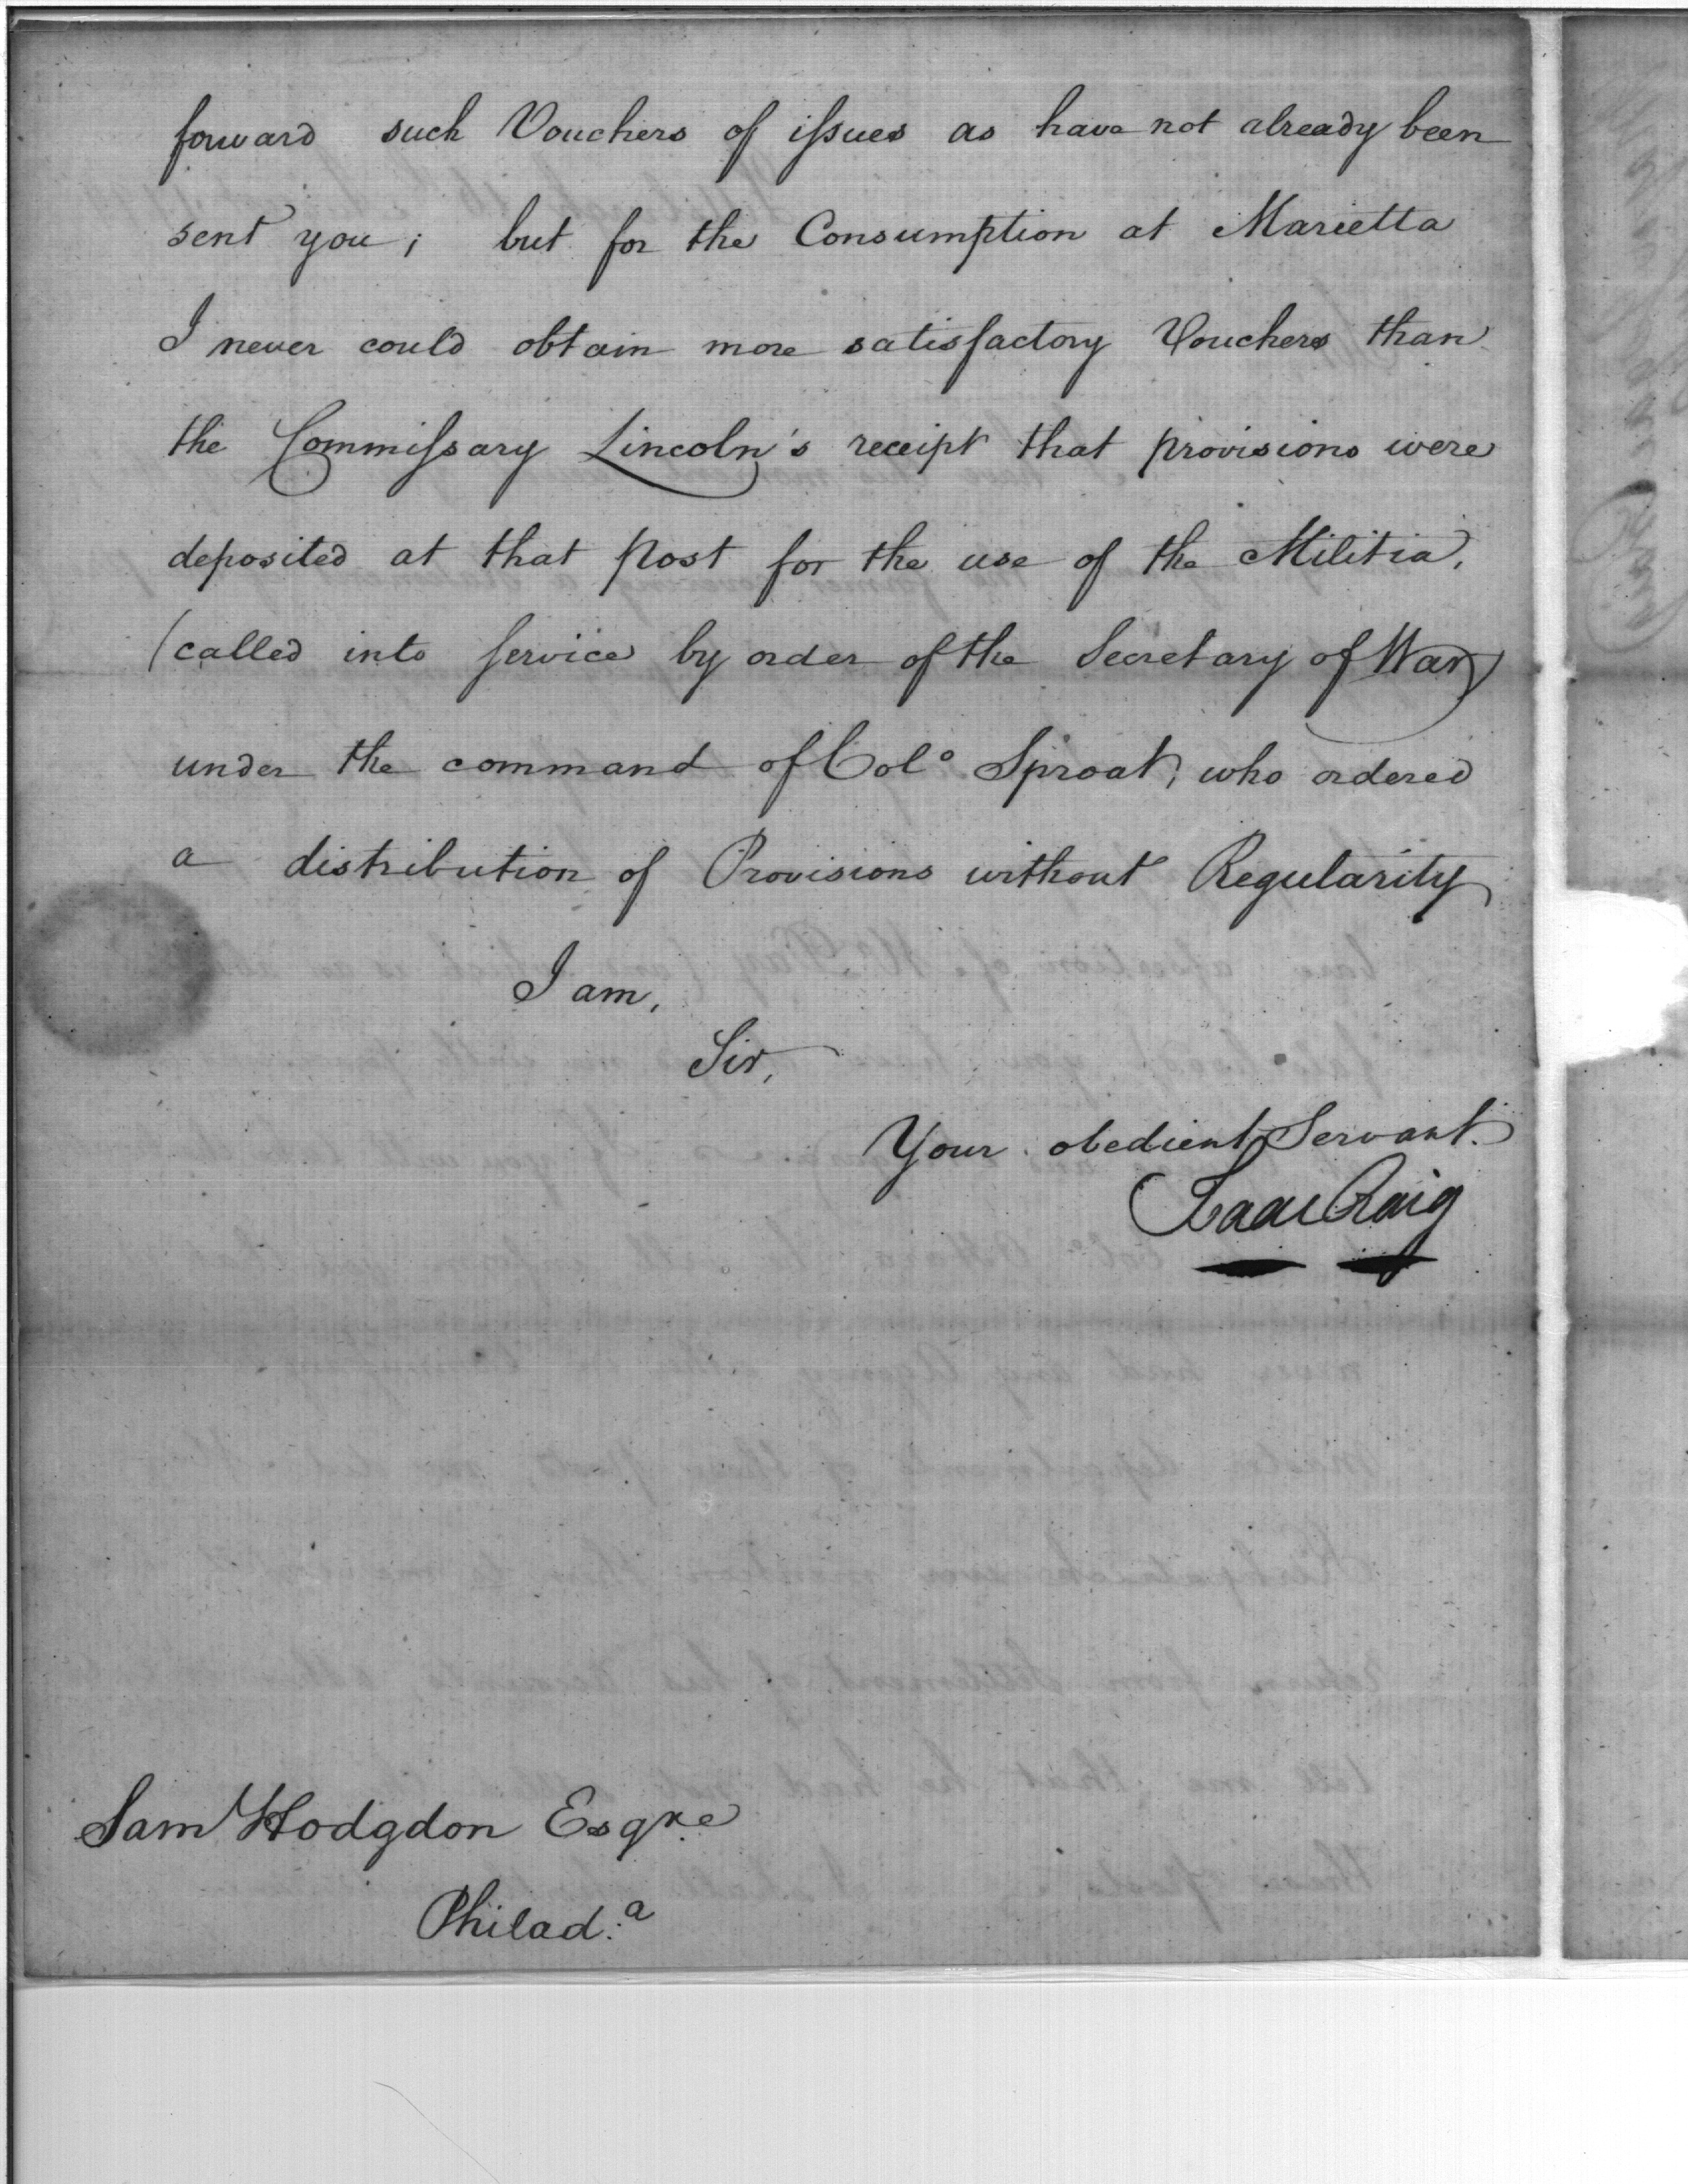 forward such Vouchers of issues as have not already been
sent you; but for the Consumption at Marietta
I never could obtain more satisfactory Vouchers than
the Commissary Lincoln's receipt that provisions were
deposited at that Post for the use of the Militia,
(called into service by order of the Secretary of War)
under the command of Colo Sproat, who ordered
a distribution of Provisions without Regularity
I am,
Sir,
Your obedient Servant.
Isaac Craig
Sam Hodgdon Esqre
Philad.a